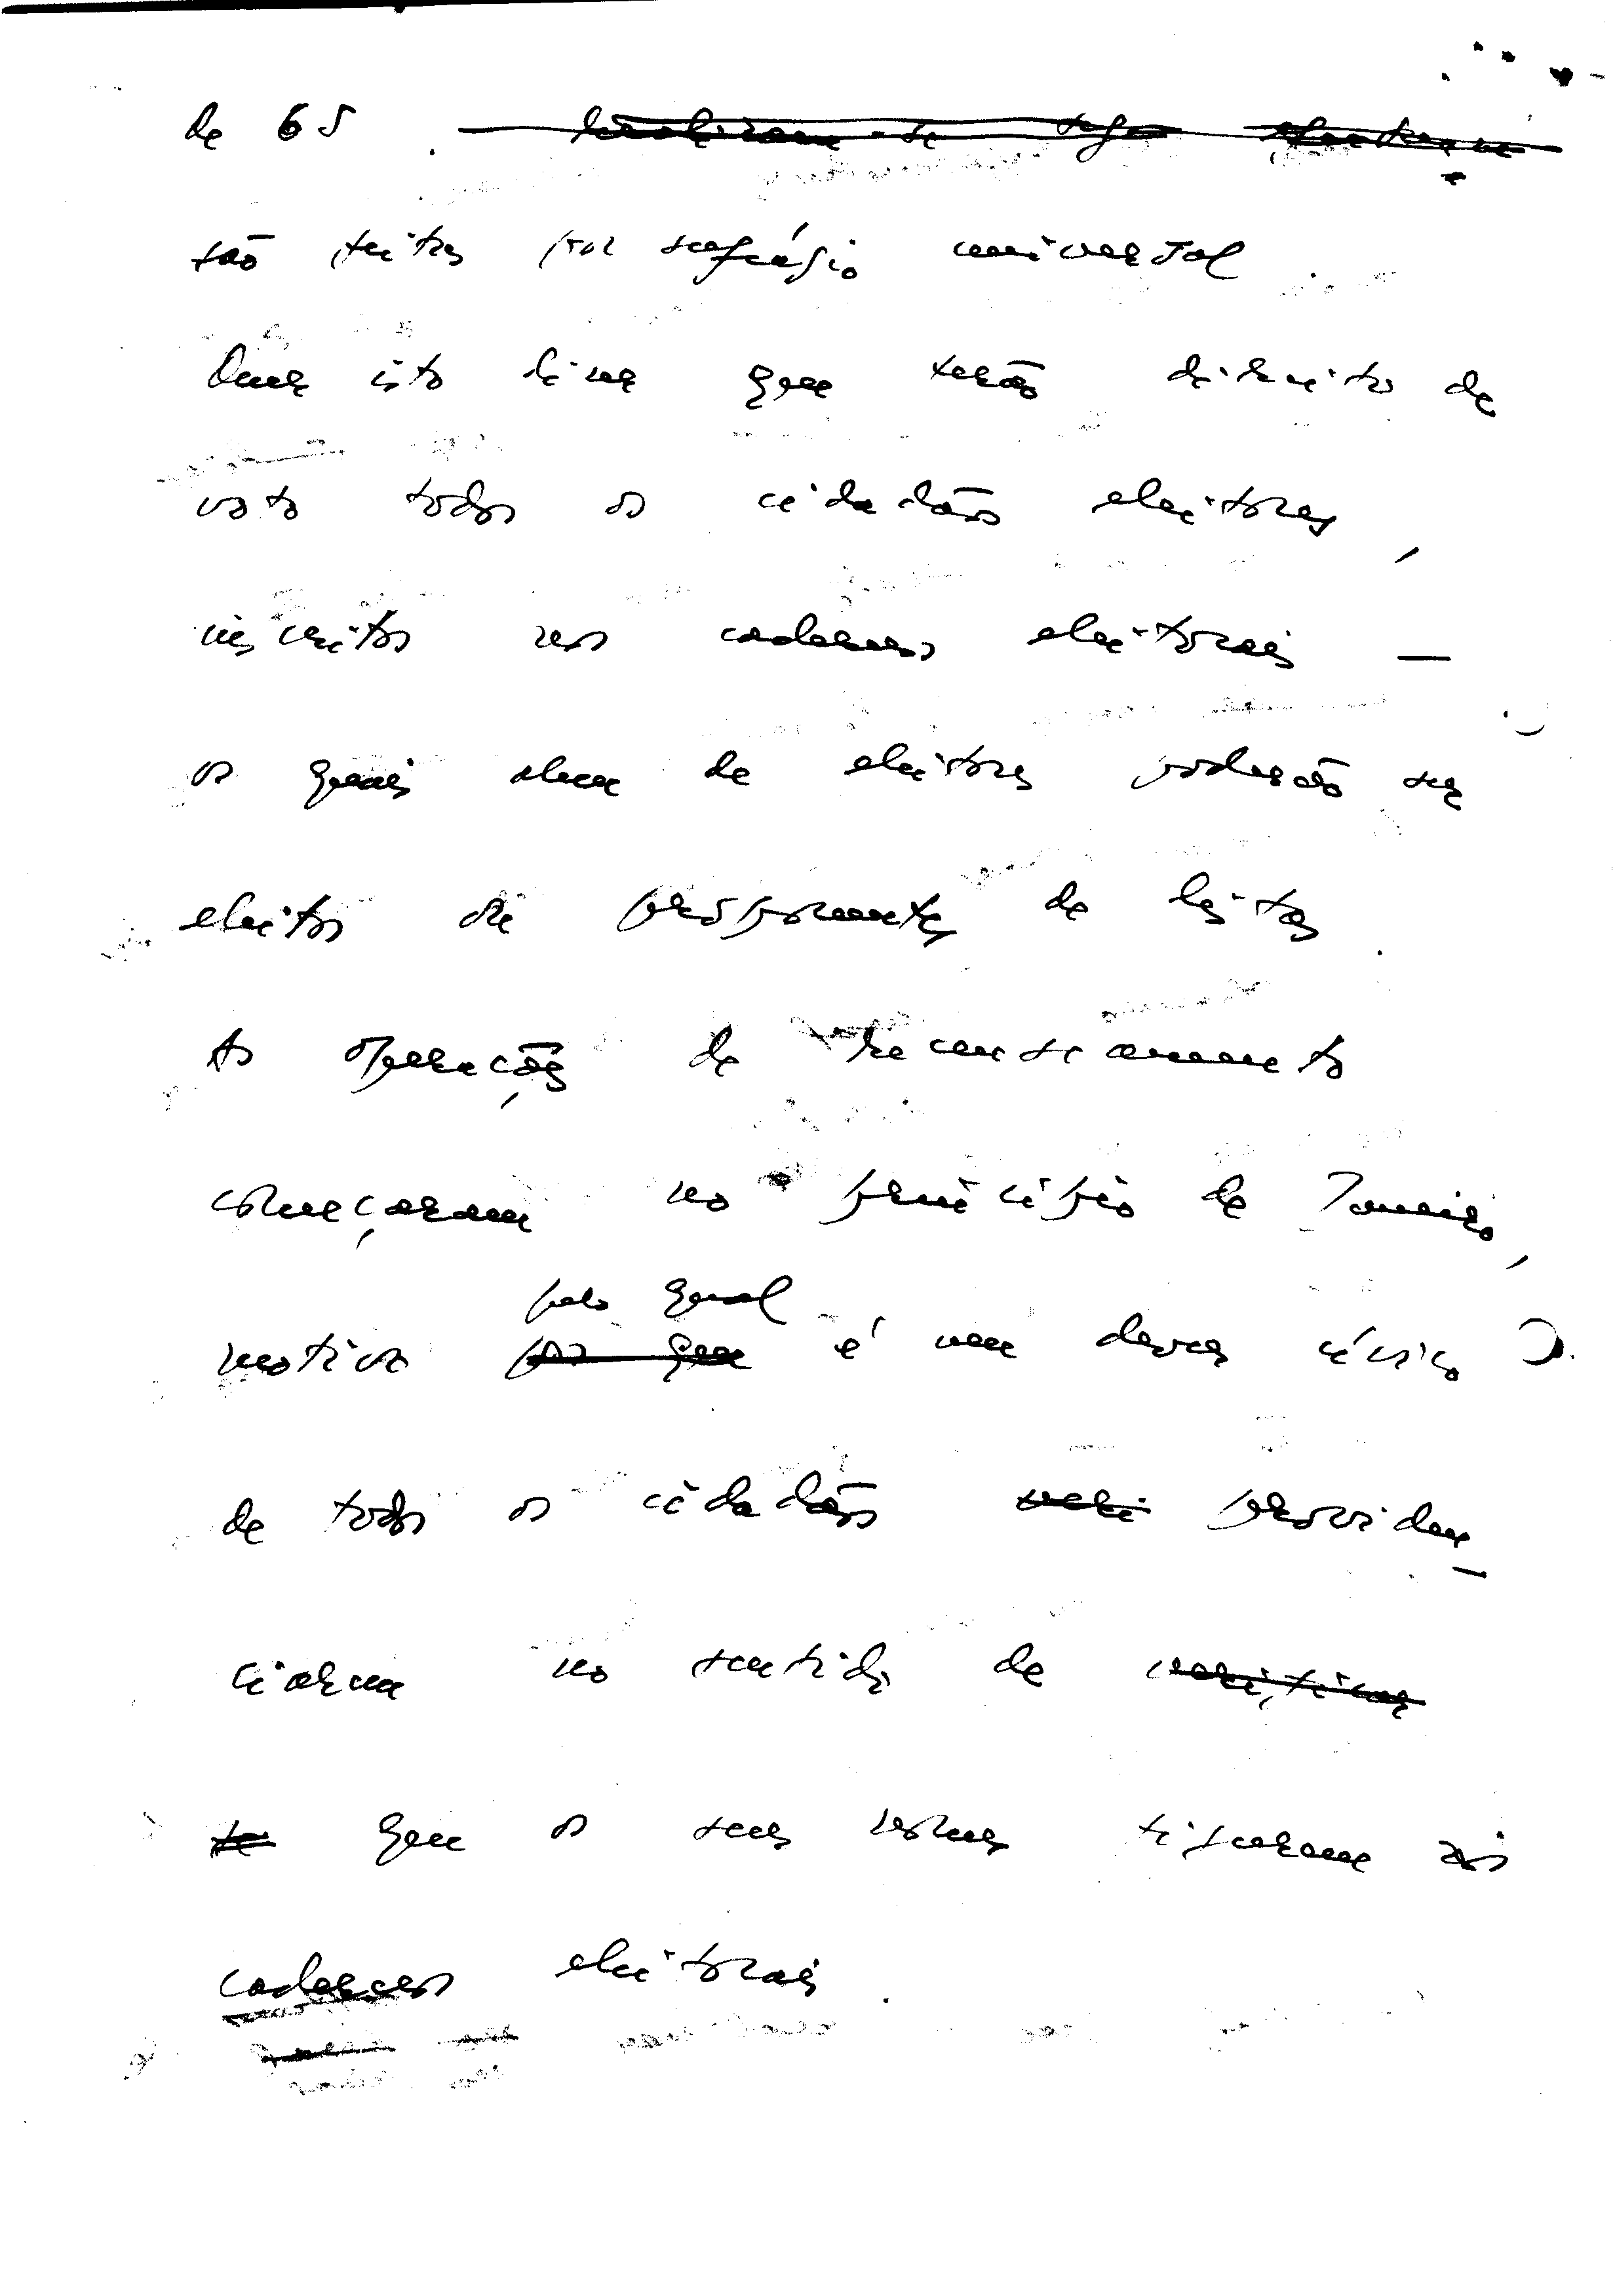 de 65.
são feitas por sufrágio universal.
Quer isto dizer que terão direito de
voto todos os cidadãos eleitores,
inscritos nos cadernos eleitorais —
os quais além de eleitores poderão ser
eleitos ou proponentes de listas.
As operações de recenseamento
começaram no princípio de Janeiro,
pelo qual
motivo ~~por que~~ é um dever cívico
de todos os cidadãos providen-
ciarem no sentido de ~~verificar~~
~~se~~ que os seus nomes figuram nos
cadernos eleitorais.